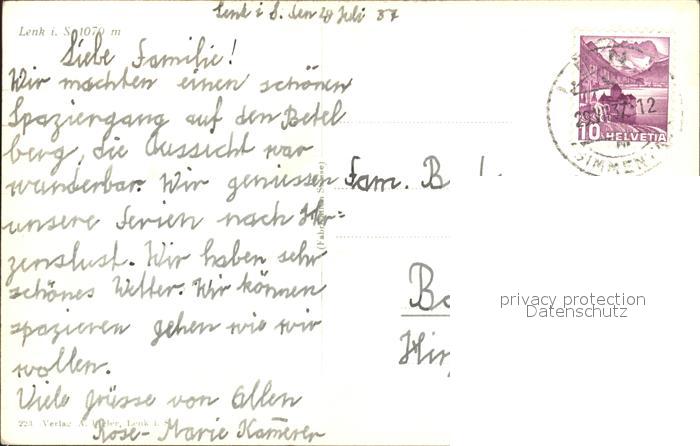 Lenk i S. den 28 Juli 37
Lenk i. S. 1070 m
Liebe Familie!
Wir machten einen schönen
Spaziergang auf den Betel
berg, die Aussicht war
wunderbar. Wir geniessen
unsere Ferien nach Her-
zenslust. Wir haben sehr
schönes Wetter. Wir können
spazieren gehen wie wir
wollen.
Viele grüsse von Allen
Rose-Marie Kammerer
223 Verlag A. Lenk i. S.
Fam. B
Ba
Hir
10 HELVETIA
12
SIMMEN
privacy protection
Datenschutz